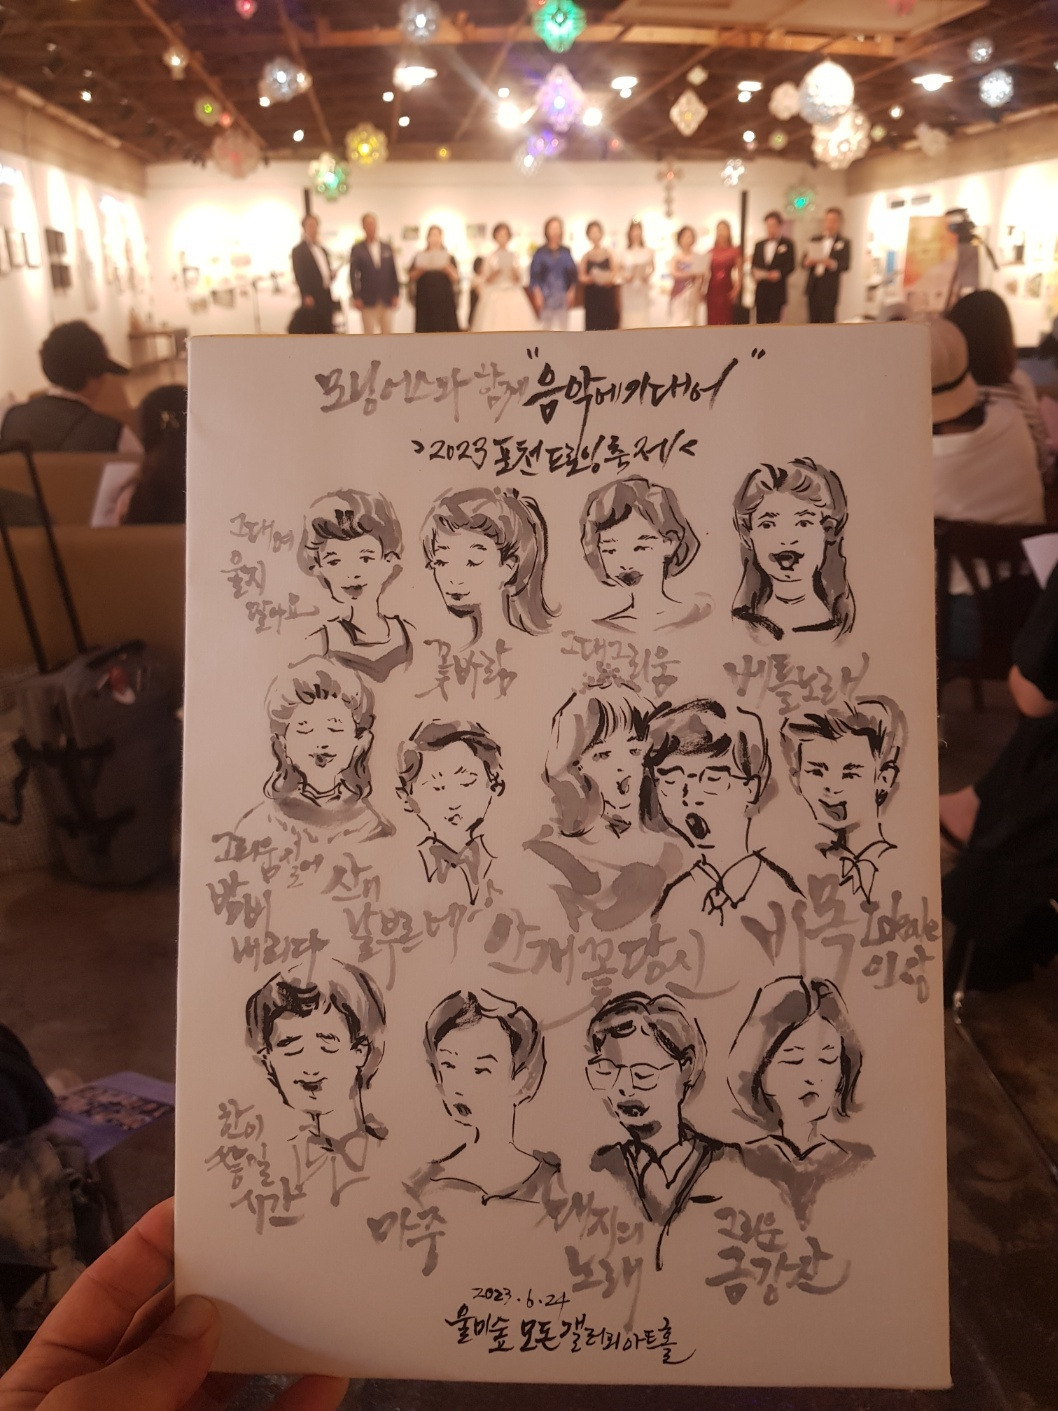 모닝어스와 함께 "음악에기대어"
>2023 포천드로잉축제<
그대여
울지
말아요
꽃바람
그대그리움
베틀노래
그리움 잃어
밤비
내리다
산이
날부르네
안개꽃당신
비목
Ideale
이상
잔이
시간
마중
대지의
노래
그리운
금강산
2023.6.24
울미숲 모돈갤러리아트홀